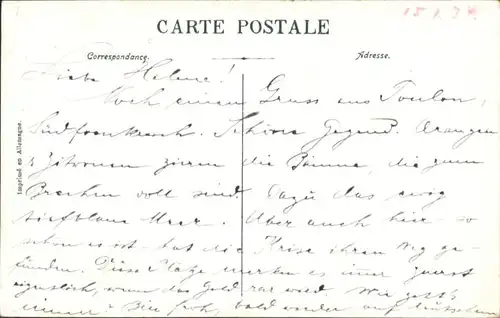 15.1.3
CARTE POSTALE
Correspondance. Adresse.
Imprimé en Allemagne.
Liebe Helene!
Noch einen Gruss aus Toulon,
Südfrankreich. Schöne Gegend. Orangen
& Zitronen zieren die Bäume, die zum
Brechen voll sind. Dazu das ewig
tiefblaue Meer. Aber auch hier - so
schön es ist - hat die Krise ihren Weg ge-
funden. Diese Plage merken es immer zuerst
eigentlich, wenn das Geld rar wird. Wie geht's
immer? Bin froh, bald wieder auf deutschem